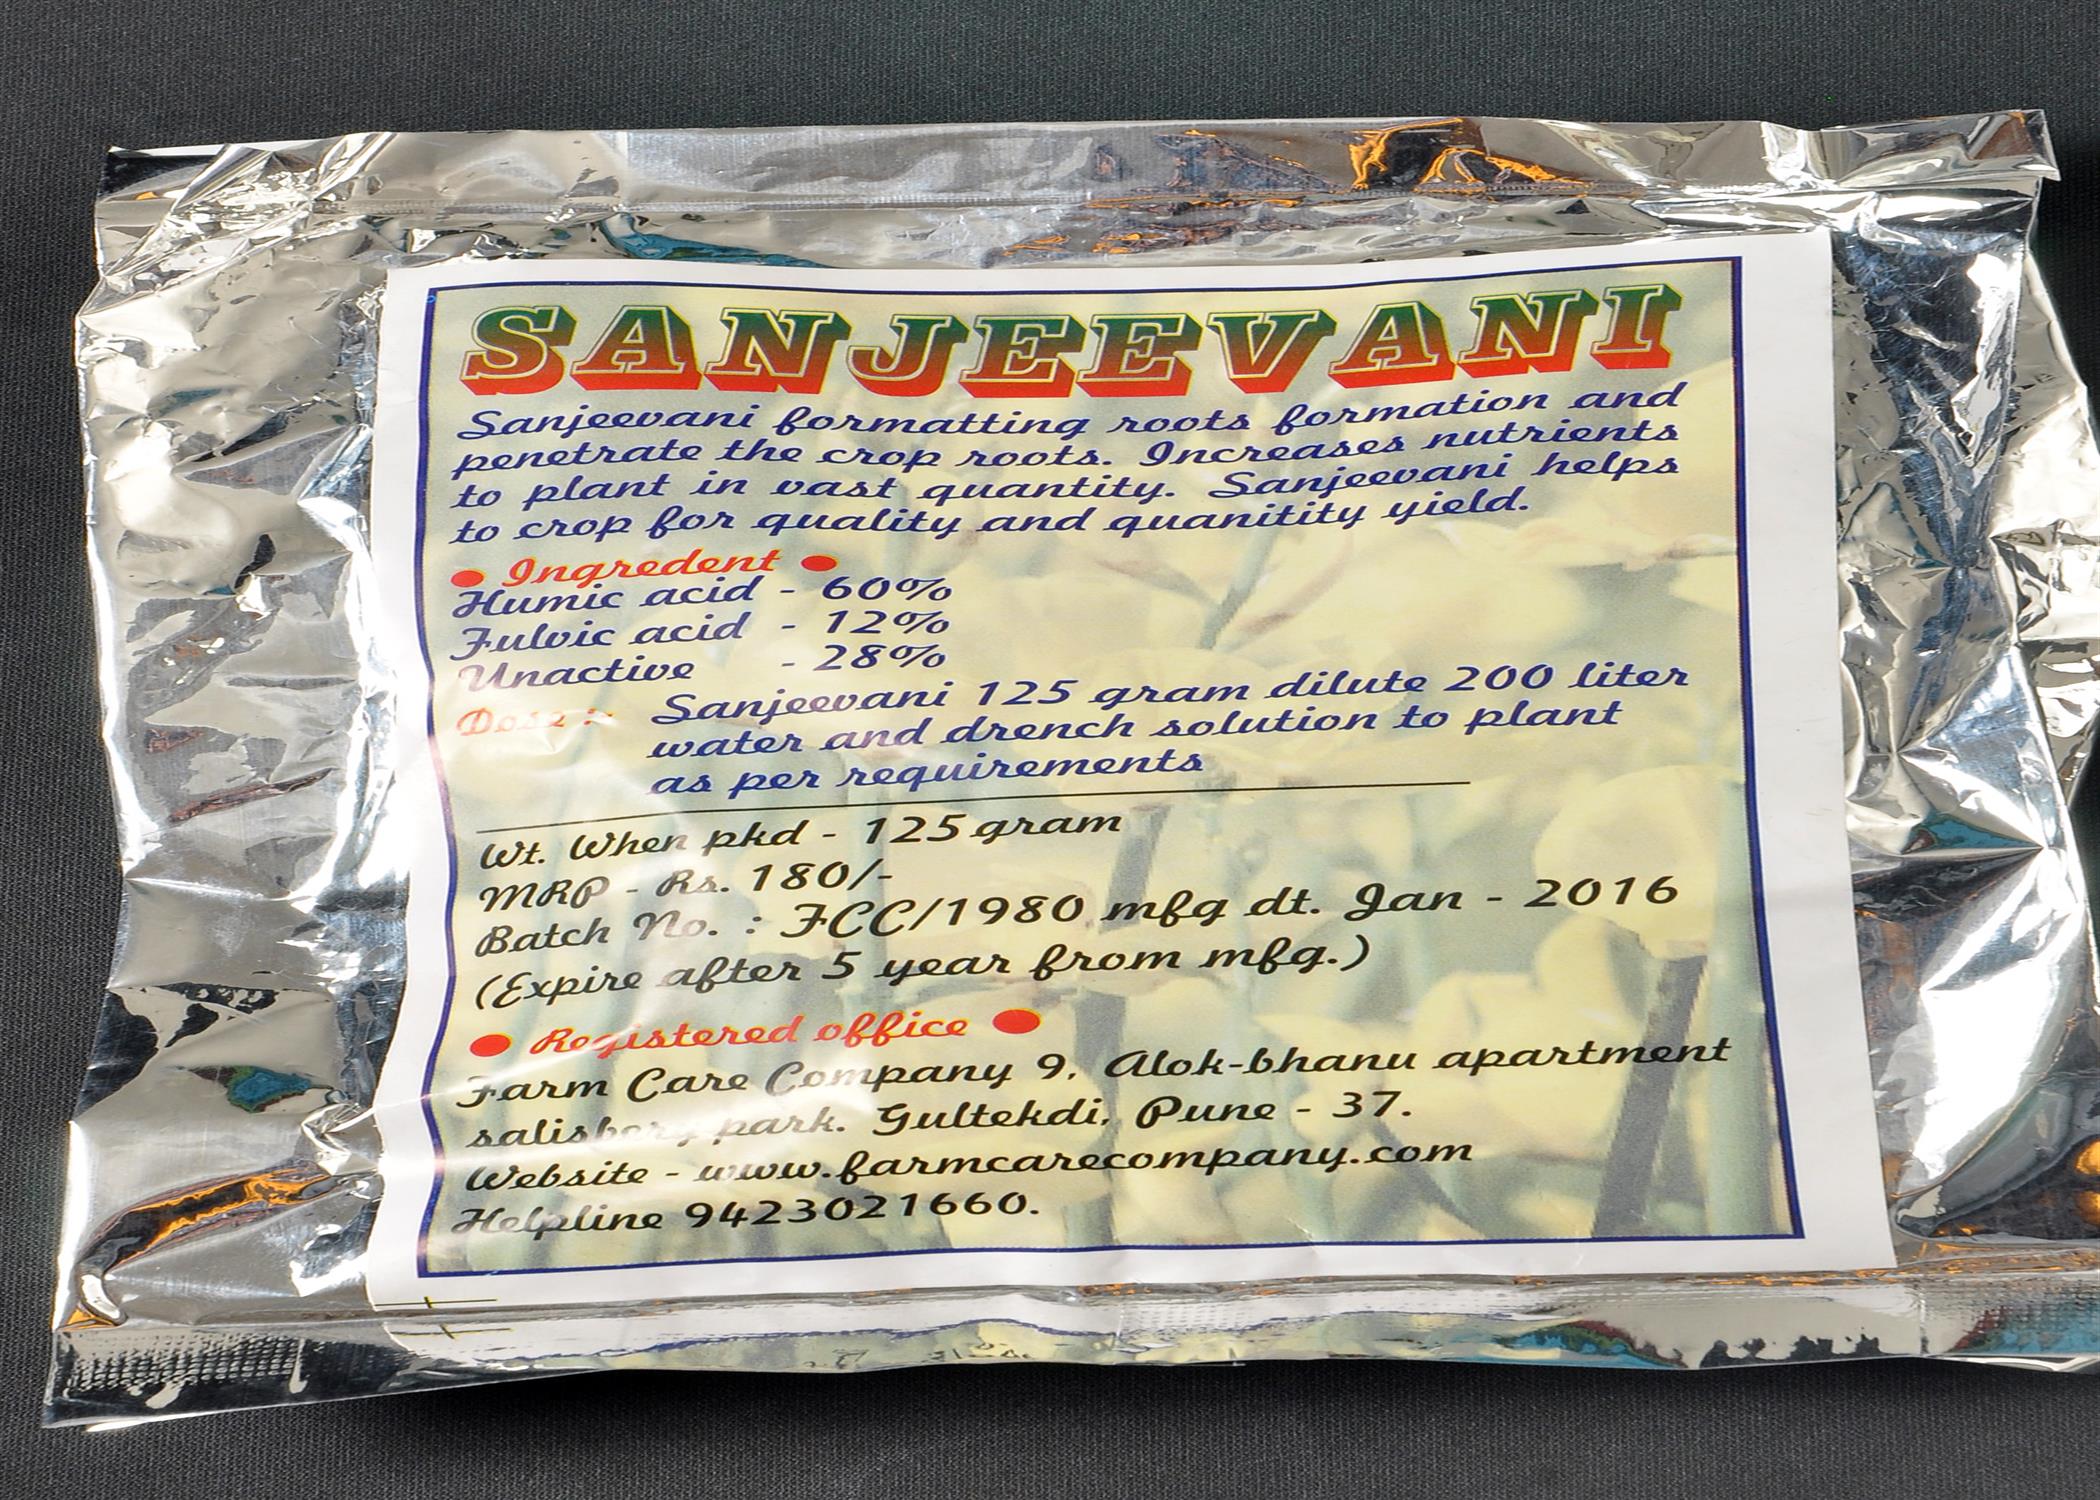 SANJEEVANI
Sanjeevani formatting roots formation and
penetrate the crop roots. Increases nutrients
to plant in vast quantity. Sanjeevani helps
to crop for quality and quanitity yield.
● Ingredent ●
Humic acid - 60%
Fulvic acid - 12%
Unactive - 28%
Dose :- Sanjeevani 125 gram dilute 200 liter
water and drench solution to plant
as per requirements
Wt. When pkd - 125 gram
MRP - Rs. 180/-
Batch No. : FCC/1980 mfg dt. Jan - 2016
(Expire after 5 year from mfg.)
● Registered office ●
Farm Care Company 9, Alok-bhanu apartment
park. Gultekdi, Pune - 37.
Website - www.farmcarecompany.com
Helpline 9423021660.